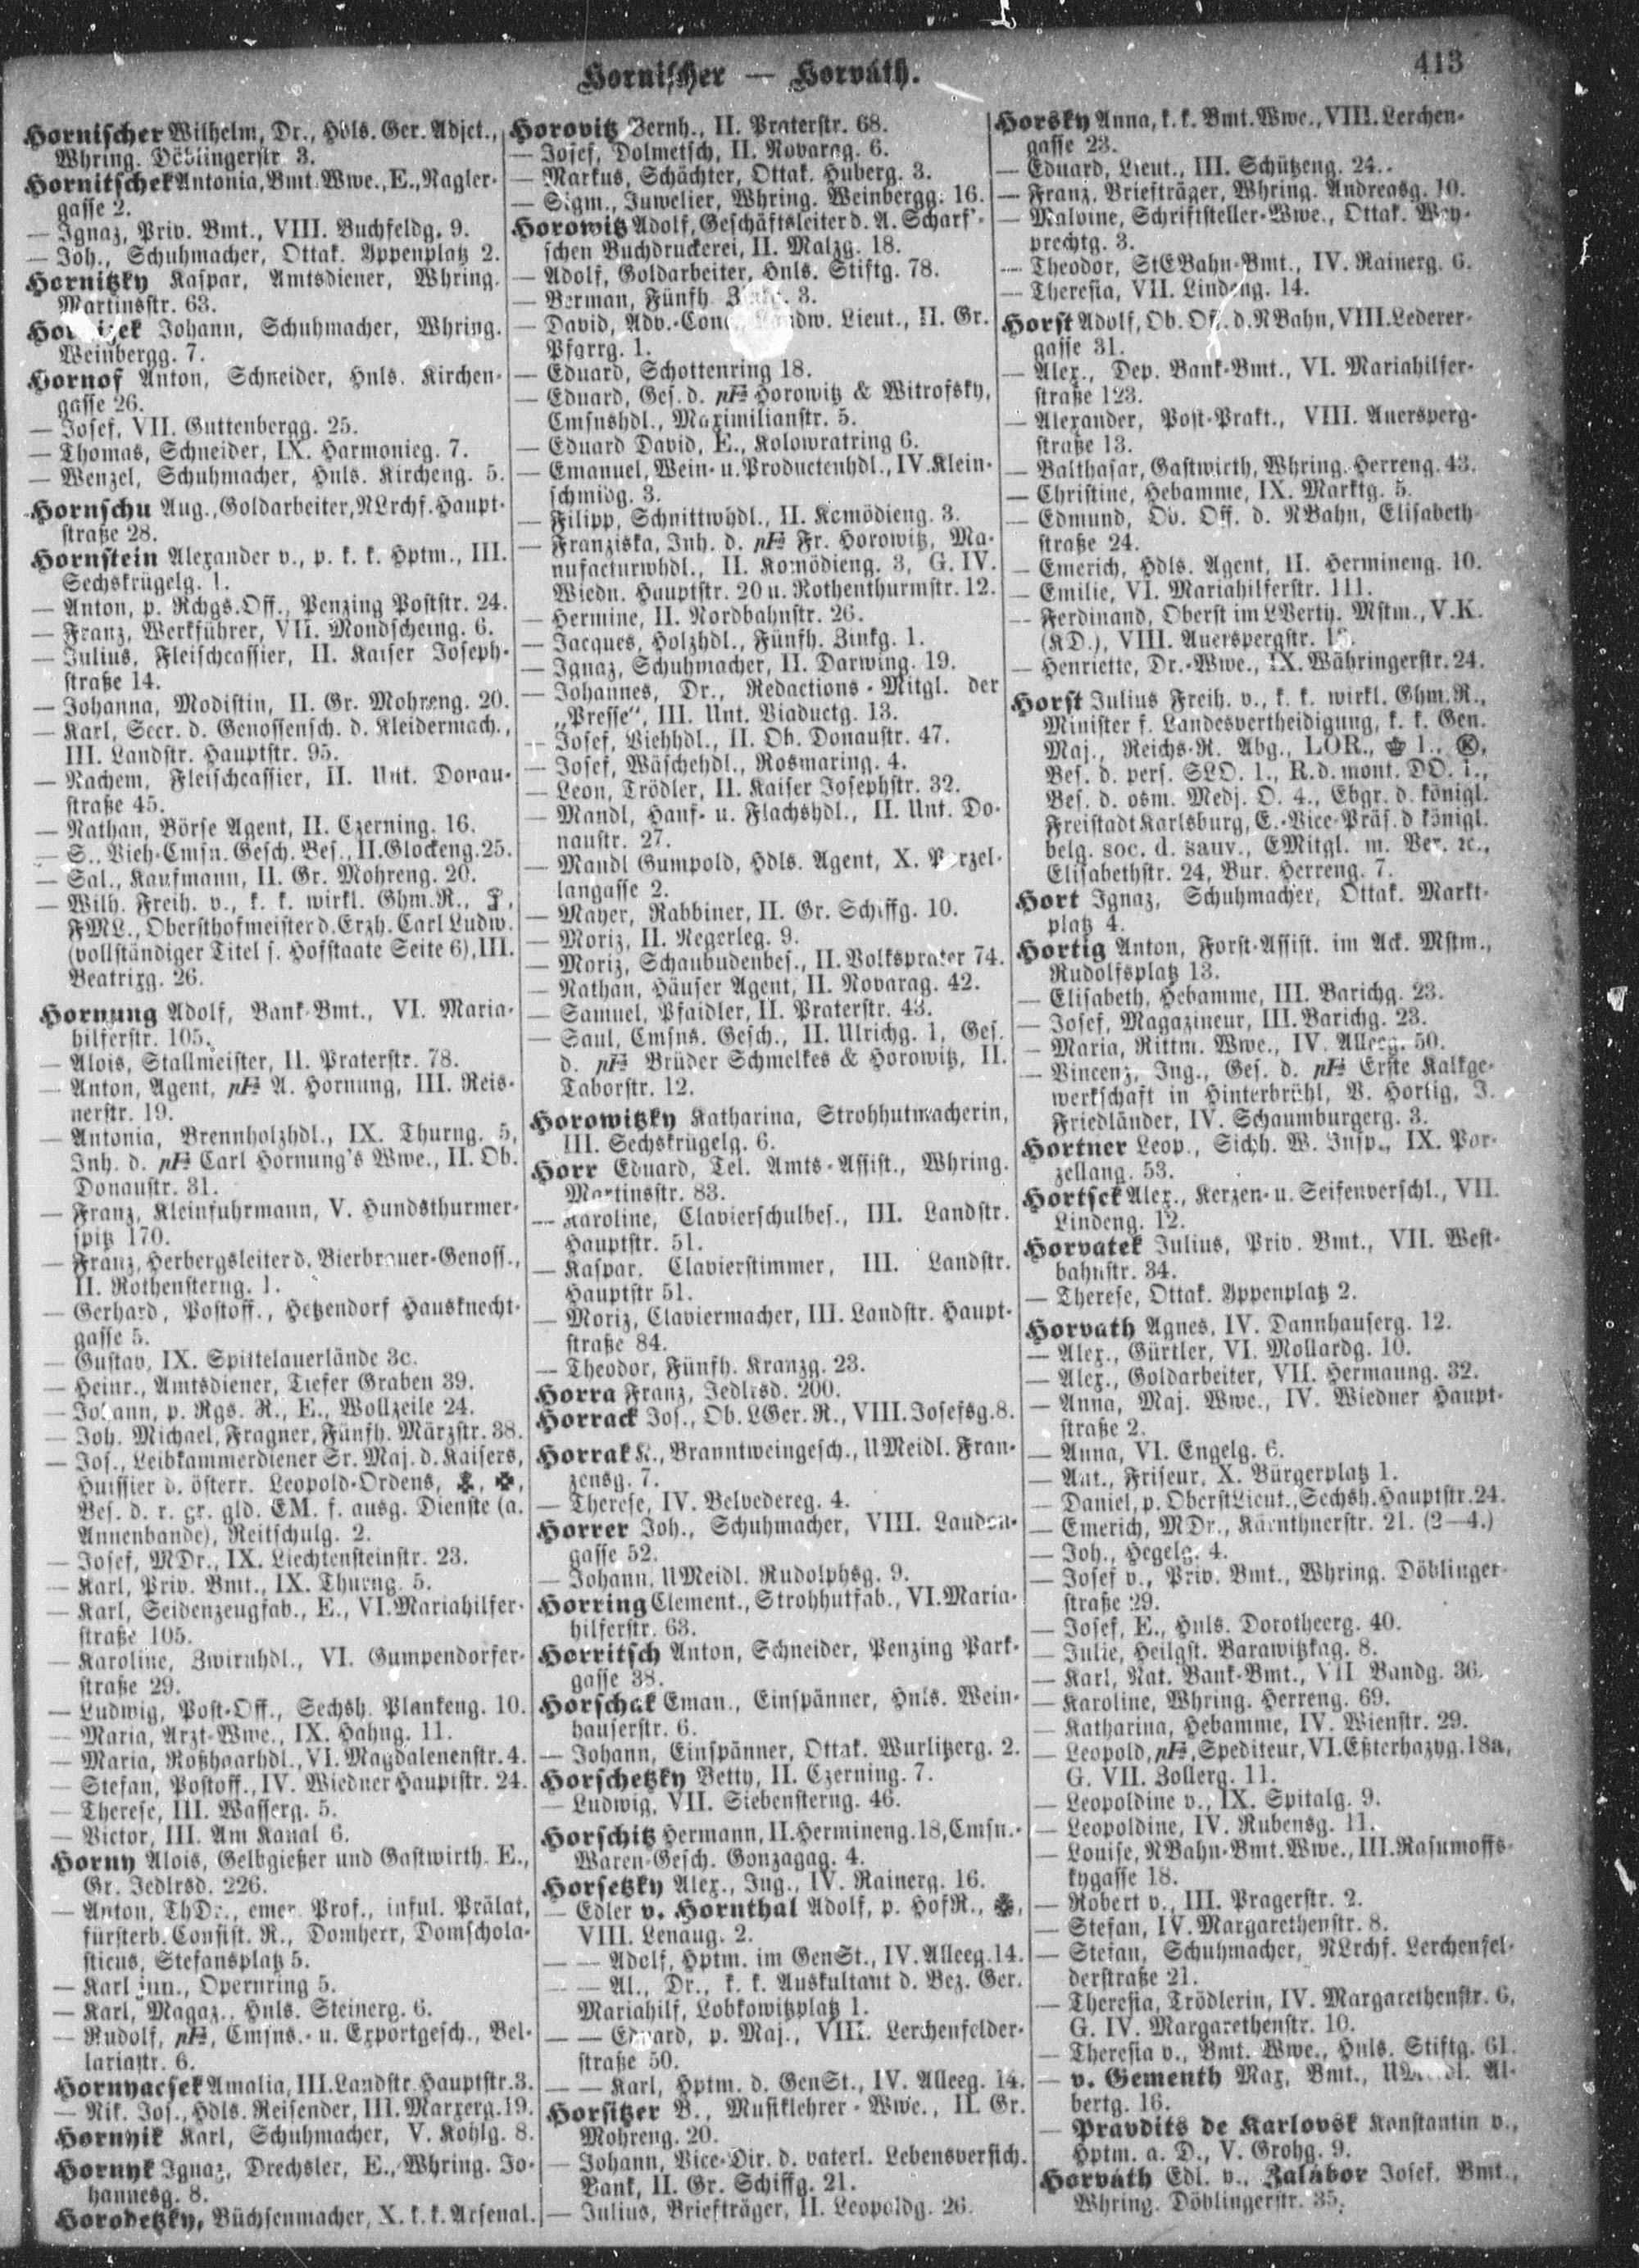 Hornischer — Horváth.
413
Hornischer Wilhelm, Dr., Hdls. Ger. Adjct.,
Whring. Döblingerstr. 3.
Hornitschek Antonia, Bmt. Wwe., E., Nagler-
gasse 2.
— Ignaz, Priv. Bmt., VIII. Buchfeldg. 9.
— Joh., Schuhmacher, Ottak. Yppenplatz 2.
Hornitzky Kaspar, Amtsdiener, Whring.
Martinsstr. 63.
Johann, Schuhmacher, Whring.
Weinbergg. 7.
Hornof Anton, Schneider, Hnls. Kirchen-
gasse 26.
— Josef, VII. Guttenbergg. 25.
— Thomas, Schneider, IX. Harmonieg. 7.
— Wenzel, Schuhmacher, Hnls. Kircheng. 5.
Hornschu Aug., Goldarbeiter, NLrchf. Haupt-
straße 28.
Hornstein Alexander v., p. k. k. Hptm., III.
Sechskrügelg. 1.
— Anton, p. Rchgs. Off., Penzing Poststr. 24.
— Franz, Werkführer, VII. Mondscheing. 6.
— Julius, Fleischcassier, II. Kaiser Joseph-
straße 14.
— Johanna, Modistin, II. Gr. Mohreng. 20.
— Karl, Secr. d. Genossensch. d. Kleidermach.,
III. Landstr. Hauptstr. 95.
— Nachem, Fleischcassier, II. Unt. Donau-
straße 45.
— Nathan, Börse Agent, II. Czerning. 16.
— S., Vieh-Cmsn. Gesch. Bes., II. Glockeng. 25.
— Sal., Kaufmann, II. Gr. Mohreng. 20.
— Wilh. Freih. v., k. k. wirkl. Ghm. R.,
FML., Obersthofmeister d. Erzh. Carl Ludw.
(vollständiger Titel s. Hofstaate Seite 6), III.
Beatrixg. 26.
Hornung Adolf, Bank-Bmt., VI. Maria-
hilferstr. 105.
— Alois, Stallmeister, II. Praterstr. 78.
— Anton, Agent, pF A. Hornung, III. Reis-
nerstr. 19.
— Antonia, Brennholzhdl., IX. Thurng. 5,
Inh. d. pF Carl Hornung's Wwe., II. Ob.
Donaustr. 31.
— Franz, Kleinfuhrmann, V. Hundsthurmer-
spitz 170.
— Franz, Herbergsleiter d. Bierbrauer-Genoss.,
II. Rothensterng. 1.
— Gerhard, Postoff., Hetzendorf Hausknecht-
gasse 5.
— Gustav, IX. Spittelauerlände 3c.
— Heinr., Amtsdiener, Tiefer Graben 39.
— Johann, p. Rgs. R., E., Wollzeile 24.
— Joh. Michael, Fragner, Fünfh. Märzstr. 38.
— Jos., Leibkammerdiener Sr. Maj. d. Kaisers,
Huissier d. österr. Leopold-Ordens,
Bes. d. r. gr. gld. EM. f. ausg. Dienste (a.
Annenbande), Reitschulg. 2.
— Josef, MDr., IX. Liechtensteinstr. 23.
— Karl, Priv. Bmt., IX. Thurng. 5.
— Karl, Seidenzeugfab., E., VI. Mariahilfer-
straße 105.
— Karoline, Zwirnhdl., VI. Gumpendorfer-
straße 29.
— Ludwig, Post-Off., Sechsh. Plankeng. 10.
— Maria, Arzt-Wwe., IX. Hahng. 11.
— Maria, Roßhaarhdl., VI. Magdalenenstr. 4.
— Stefan, Postoff., IV. Wiedner Hauptstr. 24.
— Therese, III. Wasserg. 5.
— Victor, III. Am Kanal 6.
Horny Alois, Gelbgießer und Gastwirth. E.,
Gr. Jedlrsd. 226.
— Anton, ThDr., emer. Prof., inful. Prälat,
fürsterb. Consist. R., Domherr, Domschola-
sticus, Stefansplatz 5.
— Karl jun., Opernring 5.
— Karl, Magaz., Hnls. Steinerg. 6.
— Rudolf, pF, Cmsns.- u. Exportgesch., Bel-
lariastr. 6.
Hornyacsek Amalia, III. Landstr. Hauptstr. 3.
— Nik. Jos., Hdls. Reisender, III. Marxerg. 19.
Hornyik Karl, Schuhmacher, V. Kohlg. 8.
Hornyk Ignaz, Drechsler, E., Whring. Jo-
hannesg. 8.
Horodetzky, Büchsenmacher, X. k. k. Arsenal.
Horovitz Bernh., II. Praterstr. 68.
— Josef, Dolmetsch, II. Novarag. 6.
— Markus, Schächter, Ottak. Huberg. 3.
— Sigm., Juwelier, Whring. Weinbergg. 16.
Horowitz Adolf, Geschäftsleiter d. A. Scharf'-
schen Buchdruckerei, II. Malzg. 18.
— Adolf, Goldarbeiter, Hnls. Stiftg. 78.
— Berman, Fünfh. 3.
— David, Adv.-Landw. Lieut., II. Gr.
Pfarrg. 1.
— Eduard, Schottenring 18.
— Eduard, Ges. d. pF Horowitz & Witrofsky,
Cmsnshdl., Maximilianstr. 5.
— Eduard David, E., Kolowratring 6.
— Emanuel, Wein- u. Productenhdl., IV. Klein-
schmidg. 3.
— Filipp, Schnittwhdl., II. Komödieng. 3.
— Franziska, Inh. d. pF Fr. Horowitz, Ma-
nufacturwhdl., II. Komödieng. 3, G. IV.
Wiedn. Hauptstr. 20 u. Rothenthurmstr. 12.
— Hermine, II. Nordbahnstr. 26.
— Jacques, Holzhdl., Fünfh. Zinkg. 1.
— Ignaz, Schuhmacher, II. Darwing. 19.
— Johannes, Dr., Redactions-Mitgl. der
„Presse“, III. Unt. Viaductg. 13.
— Josef, Viehhdl., II. Ob. Donaustr. 47.
— Josef, Wäschehdl., Rosmaring. 4.
— Leon, Trödler, II. Kaiser Josephstr. 32.
— Mandl, Hanf- u. Flachshdl., II. Unt. Do-
naustr. 27.
— Mandl Gumpold, Hdls. Agent, X. Porzel-
langasse 2.
— Mayer, Rabbiner, II. Gr. Schiffg. 10.
— Moriz, II. Negerleg. 9.
— Moriz, Schaubudenbes., II. Volksprater 74.
— Nathan, Häuser Agent, II. Novarag. 42.
— Samuel, Pfaidler, II. Praterstr. 43.
— Saul, Cmsns. Gesch., II. Ulrichg. 1, Ges.
d. pF Brüder Schmelkes & Horowitz, II.
Taborstr. 12.
Horowitzky Katharina, Strohhutmacherin,
III. Sechskrügelg. 6.
Horr Eduard, Tel. Amts-Assist., Whring.
Martinsstr. 83.
— Karoline, Clavierschulbes., III. Landstr.
Hauptstr. 51.
— Kaspar, Clavierstimmer, III. Landstr.
Hauptstr 51.
— Moriz, Claviermacher, III. Landstr. Haupt-
straße 84.
— Theodor, Fünfh. Kranzg. 23.
Horra Franz, Jedlesd. 200.
Horrack Jos., Ob. LGer. R., VIII. Josefsg. 8.
Horrak K., Branntweingesch., UMeidl. Fran-
zensg. 7.
— Therese, IV. Belvedereg. 4.
Horrer Joh., Schuhmacher, VIII. Laudon-
gasse 52.
— Johann, UMeidl. Rudolphsg. 9.
Horring Clement., Strohhutfab., VI. Maria-
hilferstr. 63.
Horritsch Anton, Schneider, Penzing Park-
gasse 38.
Horschak Eman., Einspänner, Hnls. Wein-
hauserstr. 6.
— Johann, Einspänner, Ottak. Wurlitzerg. 2.
Horschetzky Betty, II. Czerning. 7.
— Ludwig, VII. Siebensterng. 46.
Horschitz Hermann, II. Hermineng. 18, Cmsn.-
Waren-Gesch. Gonzagag. 4.
Horsetzky Alex., Ing., IV. Rainerg. 16.
— Edler v. Hornthal Adolf, p. HofR.,
VIII. Lenaug. 2.
— — Adolf, Hptm. im GenSt., IV. Alleeg. 14.
— — Al., Dr., k. k. Auskultant d. Bez. Ger.
Mariahilf, Lobkowitzplatz 1.
— — Eduard, p. Maj., VIII. Lerchenfelder-
straße 50.
— — Karl, Hptm. d. GenSt., IV. Alleeg. 14.
Horsitzer B., Musiklehrer-Wwe., II. Gr.
Mohreng. 20.
— Johann, Vice-Dir. d. vaterl. Lebensversich.
Bank, II. Gr. Schiffg. 21.
— Julius, Briefträger, II. Leopoldg. 26.
Horsky Anna, k. k. Bmt. Wwe., VIII. Lerchen-
gasse 23.
— Eduard, Lieut., III. Schützeng. 24.
— Franz, Briefträger, Whring. Andreasg. 10.
— Malvine, Schriftsteller-Wwe., Ottak. Wey-
prechtg. 3.
— Theodor, StEBahn-Bmt., IV. Rainerg. 6.
— Theresia, VII. Lindeng. 14.
Horst Adolf, Ob. Off. d. NBahn, VIII. Lederer-
gasse 31.
— Alex., Dep. Bank-Bmt., VI. Mariahilfer-
straße 123.
— Alexander, Post-Prakt., VIII. Auersperg-
straße 13.
— Balthasar, Gastwirth, Whring. Herreng. 43.
— Christine, Hebamme, IX. Marktg. 5.
— Edmund, Ob. Off. d. NBahn, Elisabeth-
straße 24.
— Emerich, Hdls. Agent, II. Hermineng. 10.
— Emilie, VI. Mariahilferstr. 111.
— Ferdinand, Oberst im LVerth. Mstm., V.K.
(KD.), VIII. Auerspergstr.
— Henriette, Dr.-Wwe., IX. Währingerstr. 24.
Horst Julius Freih. v., k. k. wirkl. Ghm. R.,
Minister f. Landesvertheidigung, k. k. Gen.
Maj., Reichs-R. Abg., LOR., 1.,
Bes. d. pers. SLO. 1., R. d. mont. DO. 1.,
Bes. d. osm. Medj. O. 4., Ebgr. d. königl.
Freistadt Karlsburg, E.-Vice-Präs. d königl.
belg. soc. d. sauv., EMitgl. m. Ver. ꝛc.,
Elisabethstr. 24, Bur. Herreng. 7.
Hort Ignaz, Schuhmacher, Ottak. Markt-
platz 4.
Hortig Anton, Forst-Assist. im Ack. Mstm.,
Rudolfsplatz 13.
— Elisabeth, Hebamme, III. Barichg. 23.
— Josef, Magazineur, III. Barichg. 23.
— Maria, Rittm. Wwe., IV. Alleeg. 50.
— Vincenz, Ing., Ges. d. pF Erste Kalkge-
werkschaft in Hinterbrühl, V. Hortig, J.
Friedländer, IV. Schaumburgerg. 3.
Hortner Leop., Sichh. W. Insp., IX. Por-
zellang. 53.
Hortsek Alex., Kerzen- u. Seifenverschl., VII.
Lindeng. 12.
Horvatek Julius, Priv. Bmt., VII. West-
bahnstr. 34.
— Therese, Ottak. Yppenplatz 2.
Horvath Agnes, IV. Dannhauserg. 12.
— Alex., Gürtler, VI. Mollardg. 10.
— Alex., Goldarbeiter, VII. Hermanng. 32.
— Anna, Maj. Wwe., IV. Wiedner Haupt-
straße 2.
— Anna, VI. Engelg. 6.
— Ant., Friseur, X. Bürgerplatz 1.
— Daniel, p. OberstLieut., Sechsh. Hauptstr. 24.
— Emerich, MDr., Kärnthnerstr. 21. (2—4.)
— Joh., Hegelg. 4.
— Josef v., Priv. Bmt., Whring. Döblinger-
straße 29.
— Josef, E., Hnls. Dorotheerg. 40.
— Julie, Heilgst. Barawitzkag. 8.
— Karl, Nat. Bank-Bmt., VII. Bandg. 36.
— Karoline, Whring. Herreng. 69.
— Katharina, Hebamme, IV. Wienstr. 29.
— Leopold, pF, Spediteur, VI. Eßterhazyg. 18a,
G. VII. Zollerg. 11.
— Leopoldine v., IX. Spitalg. 9.
— Leopoldine, IV. Rubensg. 11.
— Louise, NBahn-Bmt. Wwe., III. Rasumoffs-
kygasse 18.
— Robert v., III. Pragerstr. 2.
— Stefan, IV. Margarethenstr. 8.
— Stefan, Schuhmacher, NLrchf. Lerchenfel-
derstraße 21.
— Theresia, Trödlerin, IV. Margarethenstr. 6,
G. IV. Margarethenstr. 10.
— Theresia v., Bmt. Wwe., Hnls. Stiftg. 61.
— v. Gementh Max, Bmt., Al-
bertg. 16.
— Pravdits de Karlovsk Konstantin v.,
Hptm. a. D., V. Grohg. 9.
Horváth Edl. v., Zalábor Josef, Bmt.,
Whring. Döblingerstr. 35.